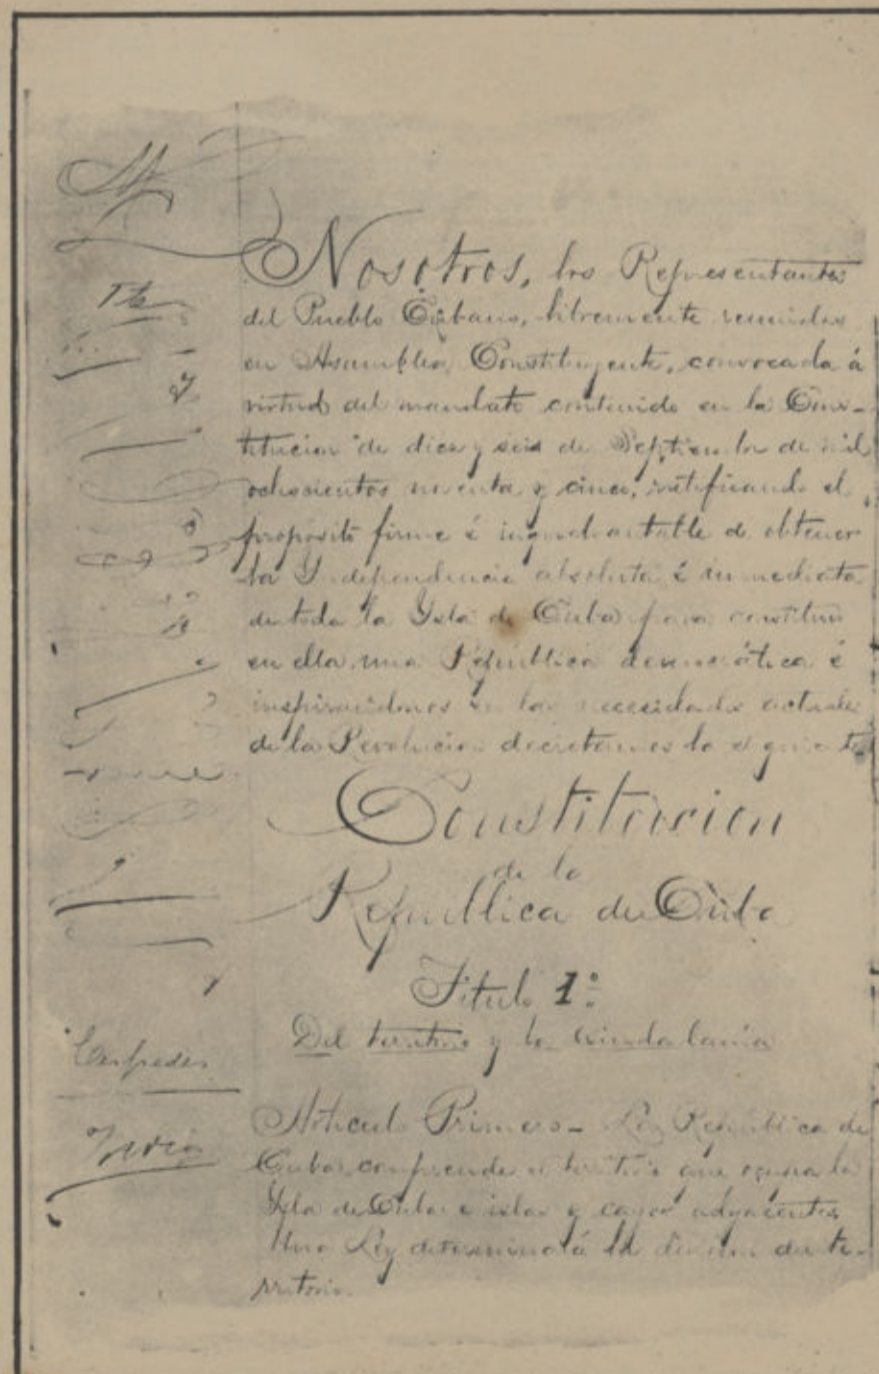 Nosotros, los Representantes
del Pueblo Cubano, libremente reunidos
en Asamblea Constituyente, convocada á
virtud del mandato contenido en la Cons-
titucion de diez y seis de Septiembre de mil
ochocientos noventa y cinco, ratificando el
propósito firme é inquebrantable de obtener
la Yndependencia absoluta é inmediata
de toda la Ysla de Cuba para constituir
en ella una República democrática é
inspirandonos en las necesidades actuales
de la Revolucion decretamos la siguiente
Constitucion
de la
República de Cuba
Titulo 1º
Del territorio y la ciudadania
Articulo Primero - La República de
Cuba comprende el territorio que ocupa la
Ysla de Cuba é islas y cayos adyacentes
Una Ley determinará la division del te-
rritorio.
Cespedes